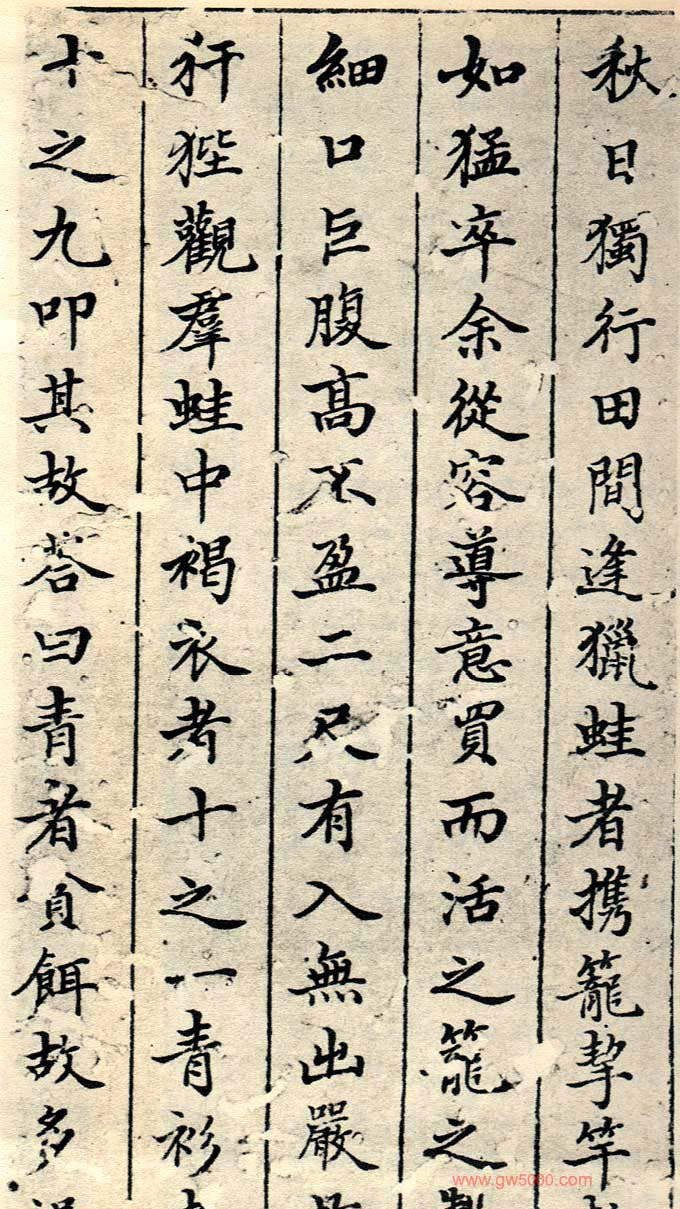 秋日獨行田間逢獵蛙者携籠挈竿
如猛卒余從容導意買而活之籠之
細口巨腹高不盈二尺有入無出嚴
犴狴觀羣蛙中褐衣者十之一青衫
十之九叩其故荅曰青者貪餌故多
www.gw5000.com